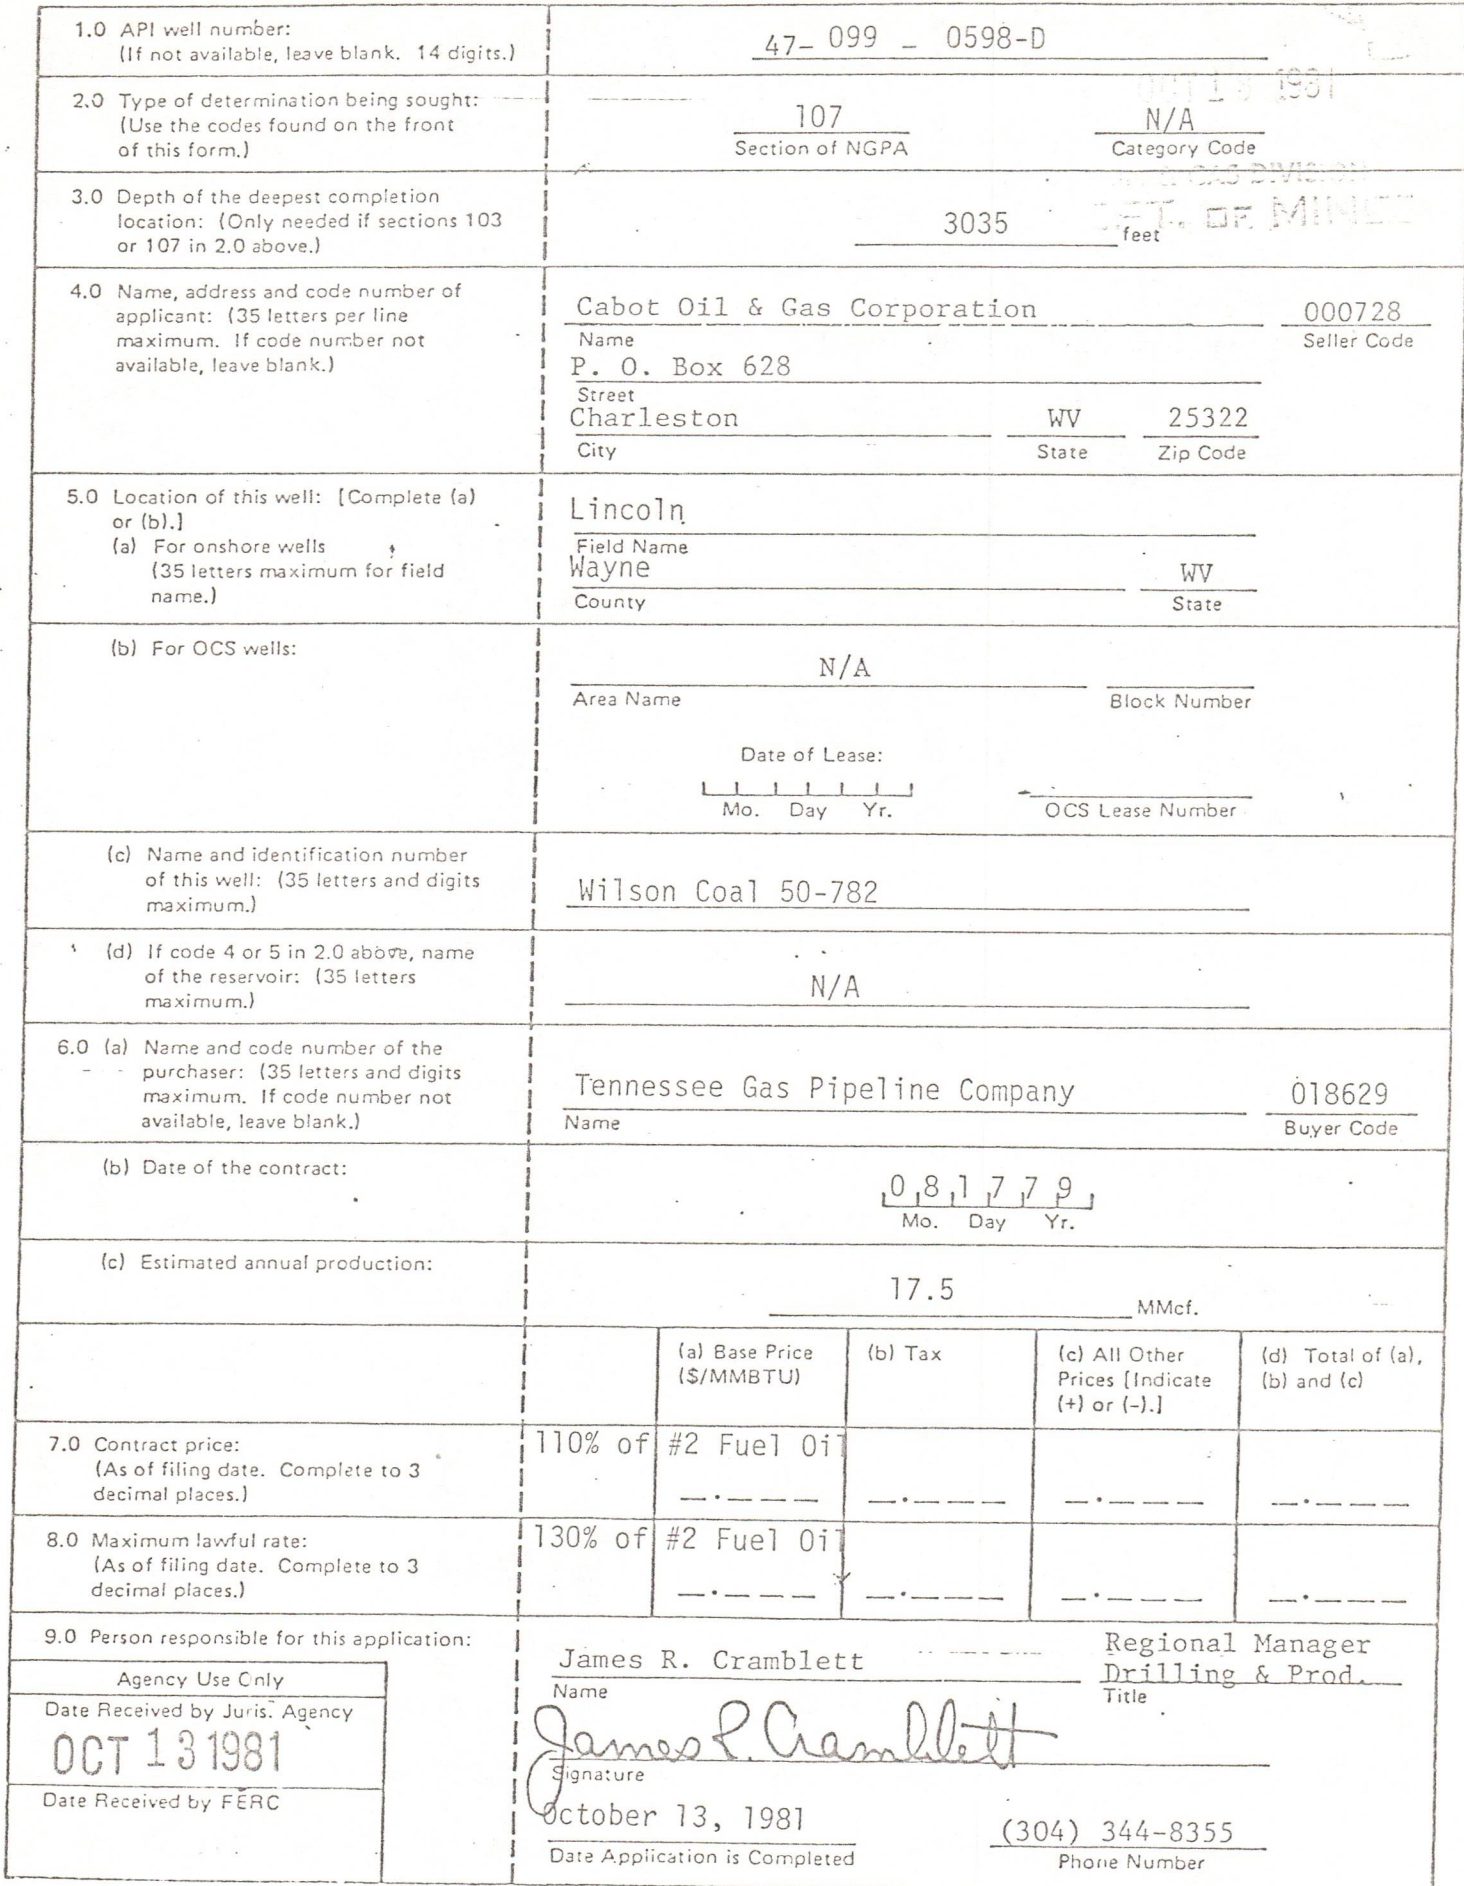 1.0 API well number:
(If not available, leave blank. 14 digits.)
47- 099 - 0598-D
2.0 Type of determination being sought:
(Use the codes found on the front
of this form.)
107
Section of NGPA
N/A
Category Code
3.0 Depth of the deepest completion
location: (Only needed if sections 103
or 107 in 2.0 above.)
3035
feet
4.0 Name, address and code number of
applicant: (35 letters per line
maximum. If code number not
available, leave blank.)
Cabot Oil & Gas Corporation
Name
000728
Seller Code
P. O. Box 628
Street
Charleston
City
WV
State
25322
Zip Code
5.0 Location of this well: [Complete (a)
or (b).]
(a) For onshore wells
(35 letters maximum for field
name.)
Lincoln
Field Name
Wayne
County
WV
State
(b) For OCS wells:
N/A
Area Name
Block Number
Date of Lease:
Mo. Day Yr.
OCS Lease Number
(c) Name and identification number
of this well: (35 letters and digits
maximum.)
Wilson Coal 50-782
(d) If code 4 or 5 in 2.0 above, name
of the reservoir: (35 letters
maximum.)
N/A
6.0 (a) Name and code number of the
purchaser: (35 letters and digits
maximum. If code number not
available, leave blank.)
Tennessee Gas Pipeline Company
Name
018629
Buyer Code
(b) Date of the contract:
0 8 1 7 7 9
Mo. Day Yr.
(c) Estimated annual production:
17.5
MMcf.
(a) Base Price
($/MMBTU)
(b) Tax
(c) All Other
Prices [Indicate
(+) or (-).]
(d) Total of (a),
(b) and (c)
7.0 Contract price:
(As of filing date. Complete to 3
decimal places.)
110% of #2 Fuel Oil
8.0 Maximum lawful rate:
(As of filing date. Complete to 3
decimal places.)
130% of #2 Fuel Oil
9.0 Person responsible for this application:
Agency Use Only
Date Received by Juris. Agency
OCT 13 1981
Date Received by FERC
James R. Cramblett
Name
Regional Manager
Drilling & Prod.
Title
James R. Cramblett
Signature
October 13, 1981
Date Application is Completed
(304) 344-8355
Phone Number